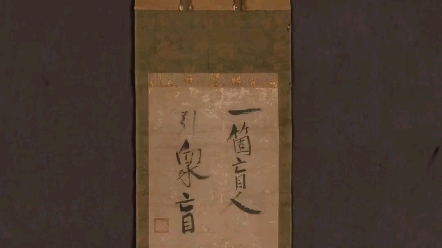 一箇盲人
引衆盲